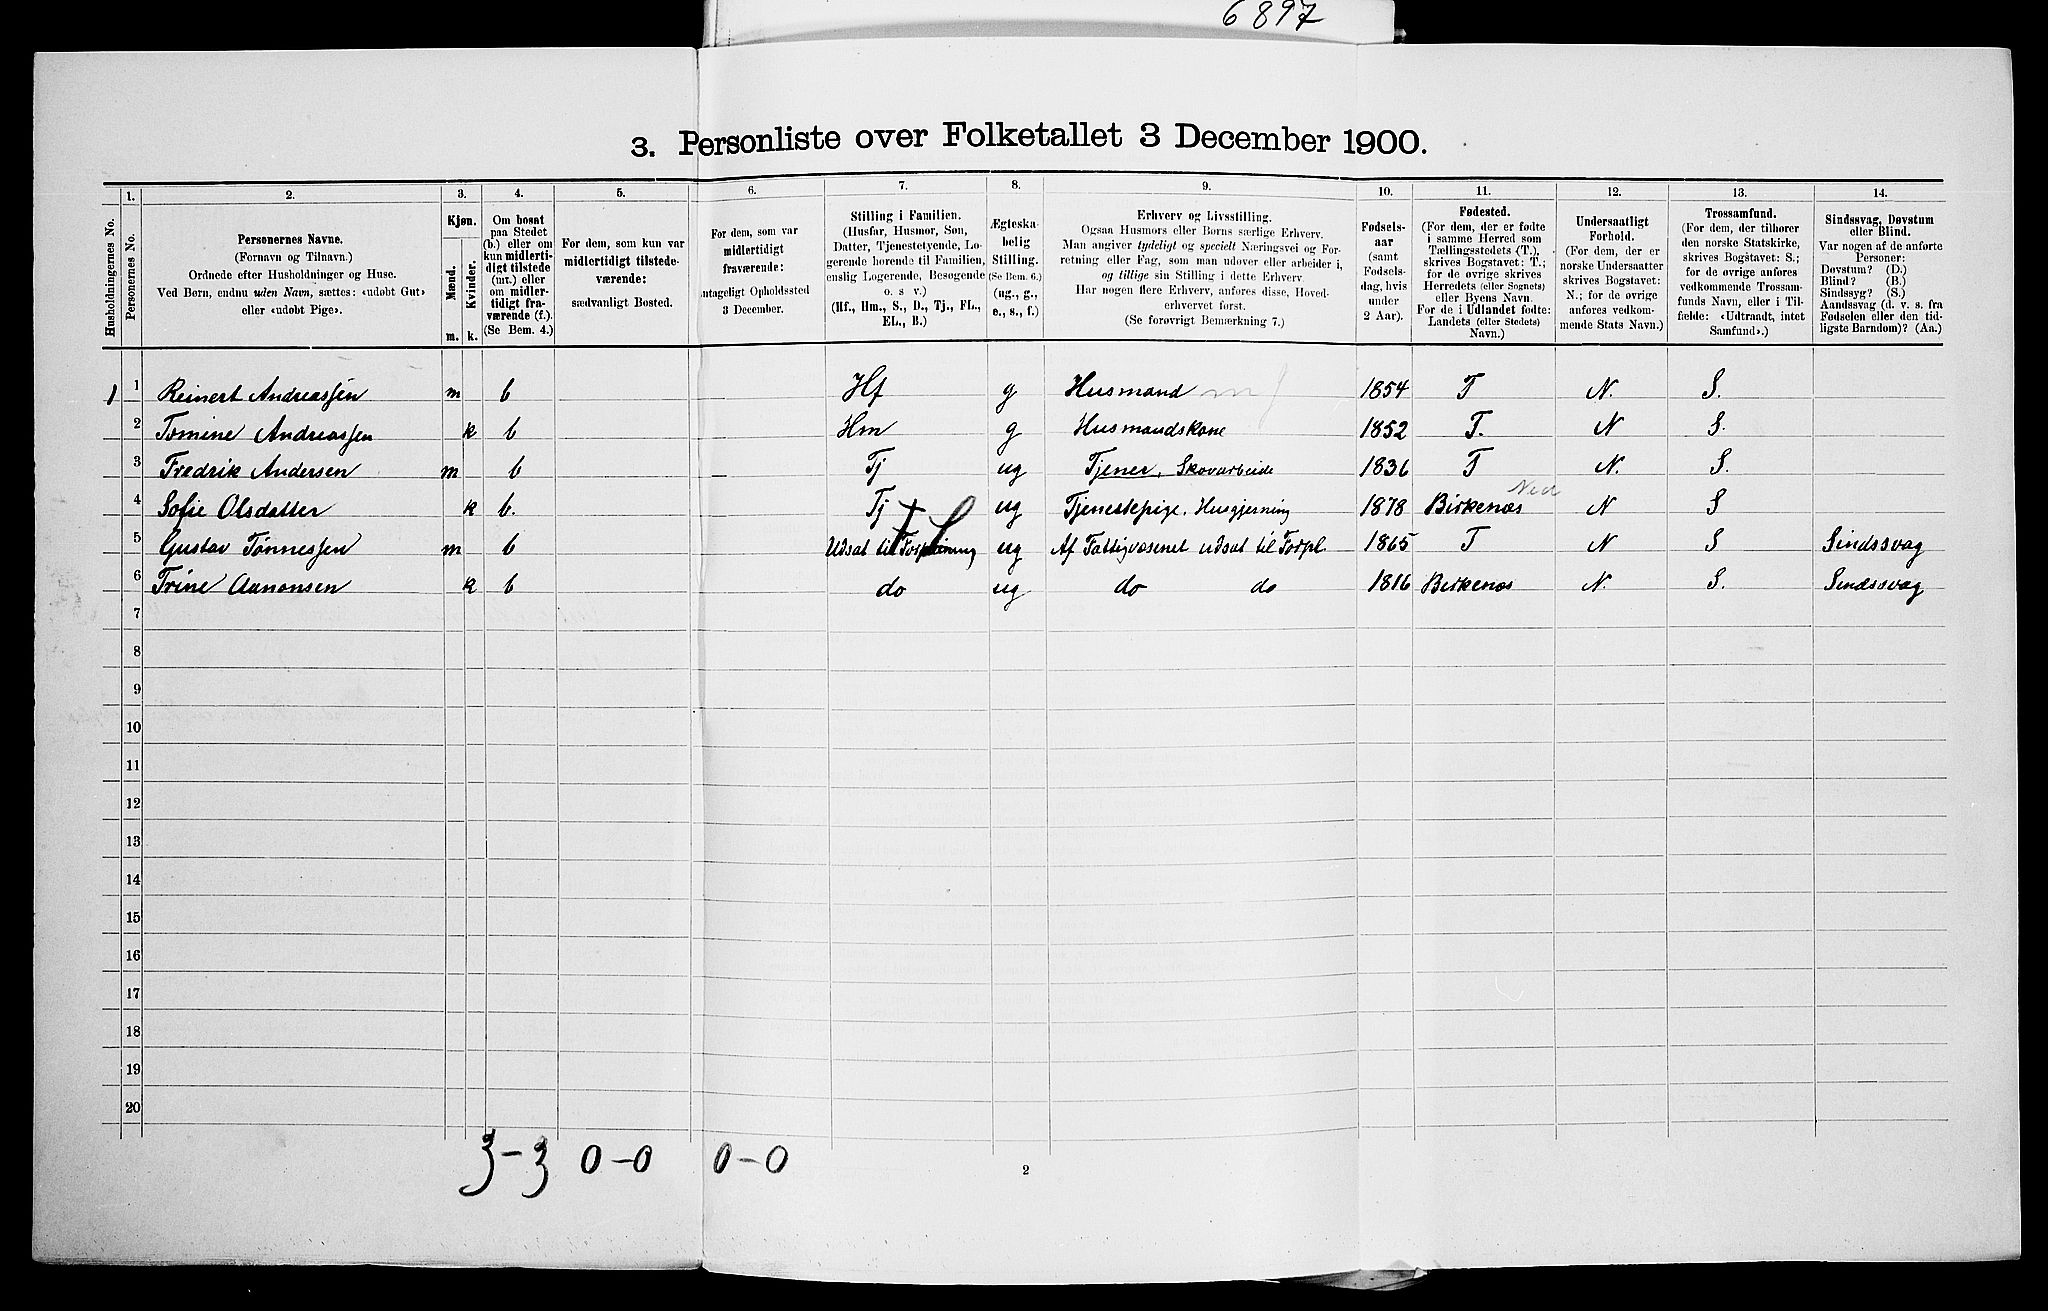 6897
3. Personliste over Folketallet 3 December 1900.
Husholdningernes No.
1.
Personernes No.
2.
Personernes Navne.
(Fornavn og Tilnavn.)
Ordnede efter Husholdninger og Huse.
Ved Børn, endnu uden Navn, sættes: «udøbt Gut»
eller «udøbt Pige».
3.
Kjøn.
Mænd.
Kvinder.
m. k.
4.
Om bosat
paa Stedet
(b.) eller om
kun midlerti-
digt tilstede
(mt.) eller
om midler-
tidigt fra-
værende (f.).
(Se Bem. 4.)
5.
For dem, som kun var
midlertidigt tilstede-
værende:
sædvanligt Bosted.
6.
For dem, som var
midlertidigt
fraværende:
antageligt Opholdssted
3 December.
7.
Stilling i Familien.
(Husfar, Husmor, Søn,
Datter, Tjenestetyende, Lo-
gerende hørende til Familien,
enslig Logerende, Besøgende
o. s v.)
(Hf., Hm., S., D., Tj., FL.,
EL., B.)
8.
Ægteska-
belig
Stilling.
(Se Bem. 6.)
(ug., g.,
e., s., f.)
9.
Erhverv og Livsstilling.
Ogsaa Husmors eller Børns særlige Erhverv.
Man angiver tydeligt og specielt Næringsvei og For-
retning eller Fag, som man udøver eller arbeider i,
og tillige sin Stilling i dette Erhverv.
Har nogen flere Erhverv, anføres disse, Hoved-
erhvervet først.
(Se forøvrigt Bemærkning 7.)
10.
Fødsels-
aar
(samt
Fødsels-
dag, hvis
under
2 Aar).
11.
Fødested.
(For dem, der er fødte
i samme Herred som
Tællingsstedets (T.),
skrives Bogstavet: T.;
for de øvrige skrives
Herredets (eller Sognets)
eller Byens Navn.
For de i Udlandet fødte:
Landets (eller Stedets)
Navn.)
12.
Undersaatligt
Forhold.
(For dem, der er
norske Undersaatter
skrives Bogstavet:
N.; for de øvrige
anføres vedkom-
mende Stats Navn.)
13.
Trossamfund.
(For dem, der tilhører
den norske Statskirke,
skrives Bogstavet: S.;
for de øvrige anføres
vedkommende Trossam-
funds Navn, eller i Til-
fælde: «Udtraadt, intet
Samfund».)
14.
Sindssvag, Døvstum
eller Blind.
Var nogen af de anførte
Personer:
Døvstum? (D.)
Blind? (B.)
Sindssyg? (S.)
Aandssvag (d. v. s. fra
Fødselen eller den tid-
ligste Barndom)? (Aa.)
1 1 Reinert Andreassen m b Hf g Husmand 1854 T N. S.
2 Tomine Andreassen k b Hm g Husmandskone 1852 T. N S.
3 Fredrik Andersen m b Tj ug Tjener, Skovarbeide 1836 T N. S.
Ned
4 Sofie Olsdatter k b. Tj ug Tjenestepige, Husgjerning 1878 Birkenæs N S
5 Gustav Tønnessen m b Udsat til Forpleining ug Af Fattigvæsenet udsat til Forpl. 1865 T N S Sindssvag
6 Trine Aanonsen k b do ug do do 1816 Birkenæs N. S. Sindssvag
7
8
9
10
11
12
13
14
15
16
17
18
19
20
3-3 0-0 0-0
2